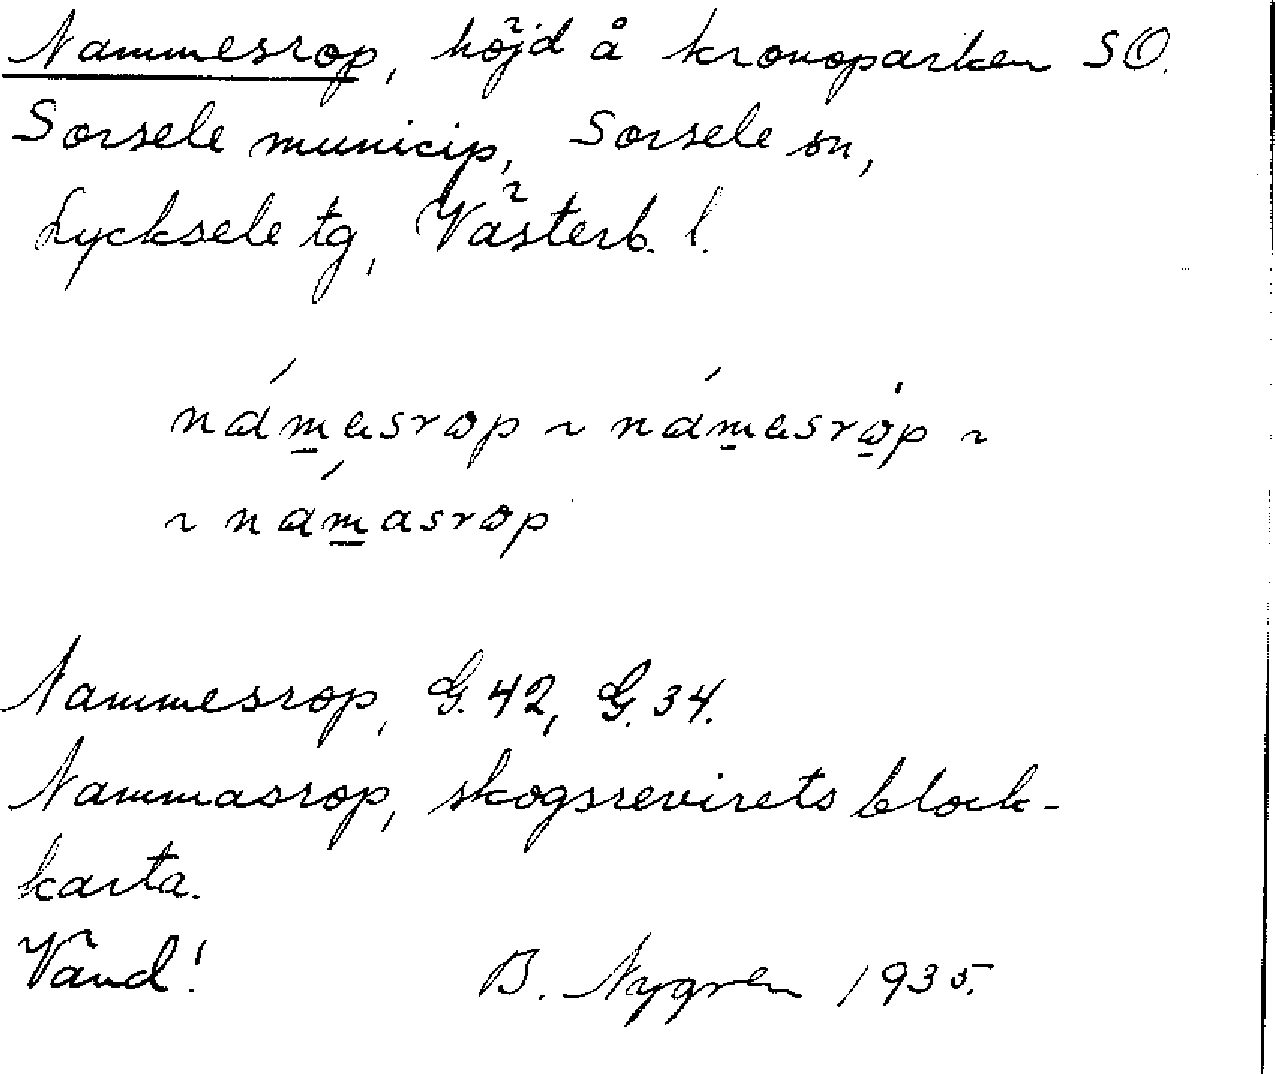 Nammesrop, höjd å kronoparken SO.
Sorsele municip, Sorsele sn,
Lycksele tg, Västerb. l.
nám̲esrop ~ nám̲esrȯ̲p ~
~ nám̲asrop
Nammesrop, G. 42, G. 34.
Nammasrop, skogsrevirets block-
karta.
Vänd!
B. Nygren 1935.